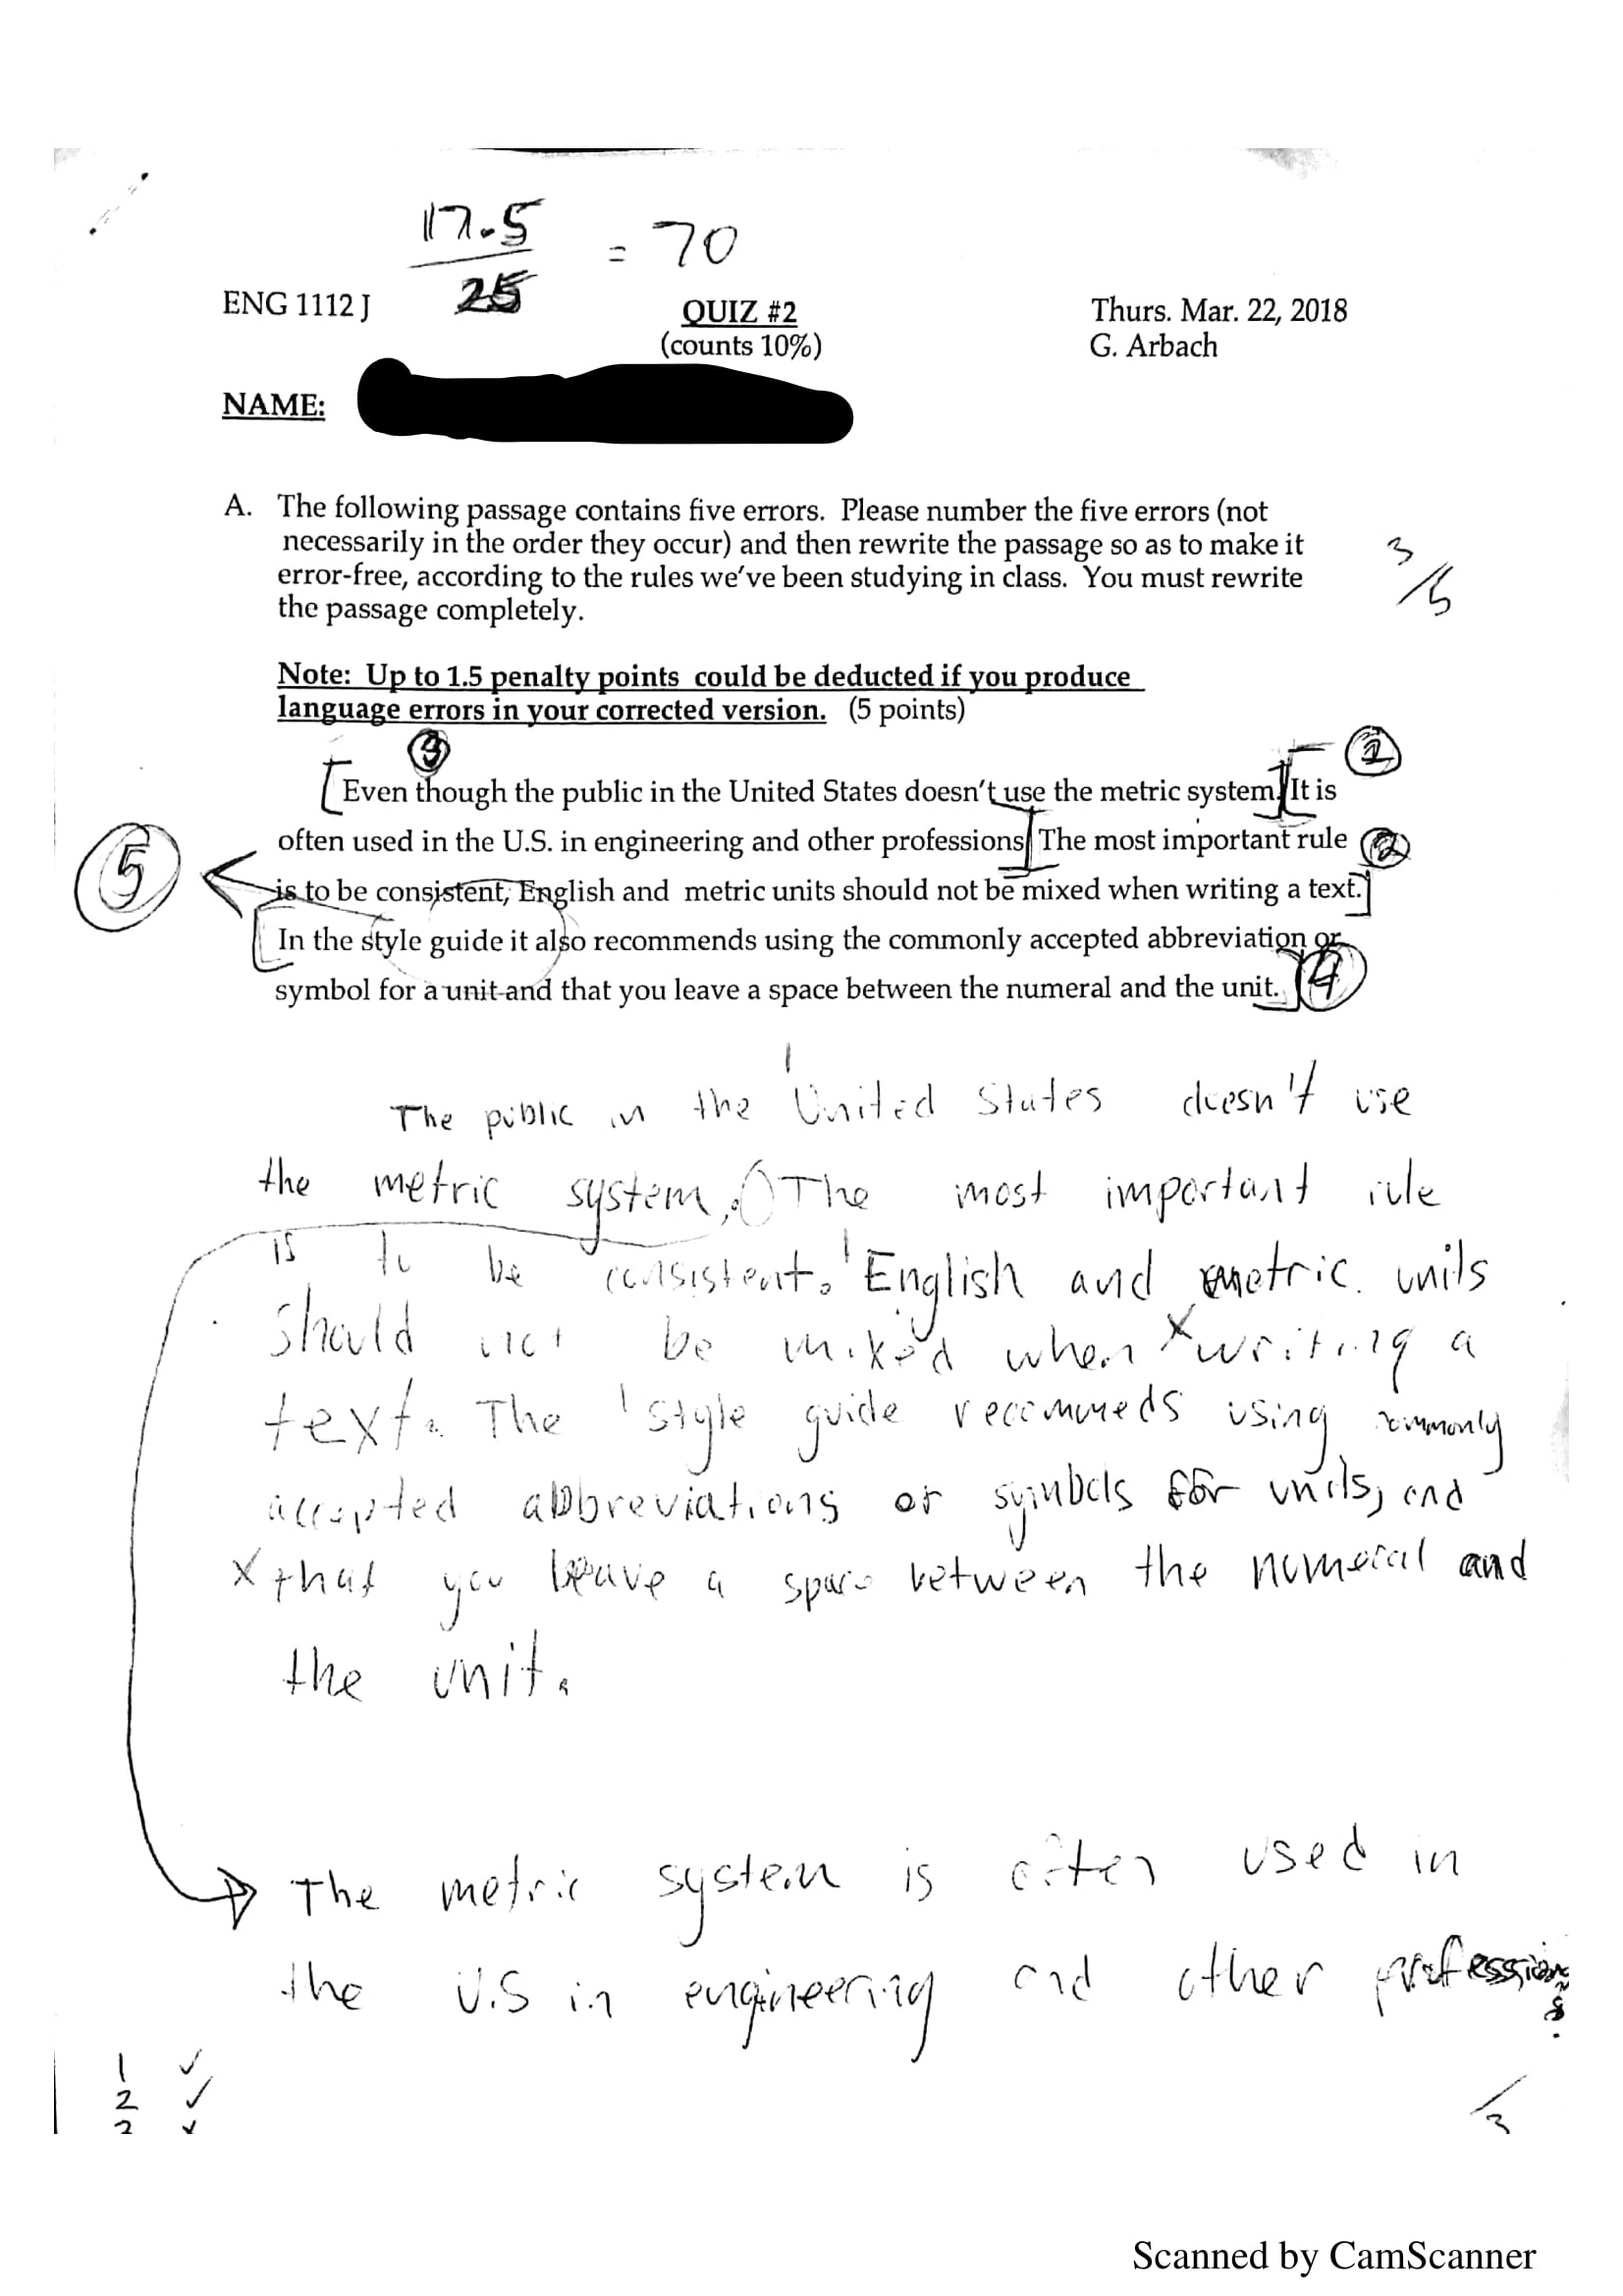 17.5
25
= 70
ENG 1112 J
QUIZ #2
(counts 10%)
Thurs. Mar. 22, 2018
G. Arbach
NAME:
A. The following passage contains five errors. Please number the five errors (not
necessarily in the order they occur) and then rewrite the passage so as to make it
error-free, according to the rules we've been studying in class. You must rewrite
the passage completely.
3/5
Note: Up to 1.5 penalty points could be deducted if you produce
language errors in your corrected version. (5 points)
Even though the public in the United States doesn't use the metric system. It is
often used in the U.S. in engineering and other professions. The most important rule
is to be consistent, English and metric units should not be mixed when writing a text.
In the style guide it also recommends using the commonly accepted abbreviation or
symbol for a unit and that you leave a space between the numeral and the unit.
5
4
The public in the United States doesn't use
the metric system. The most important rule
is to be consistent. English and metric units
should not be mixed when writing a
text. The style guide recommeds using commonly
accepted abbreviations or symbols for units, and
x that you leave a space between the numeral and
the unit.
The metric system is often used in
the U.S in engineering and other professions.
1 ✓
2 ✓
/3
Scanned by CamScanner